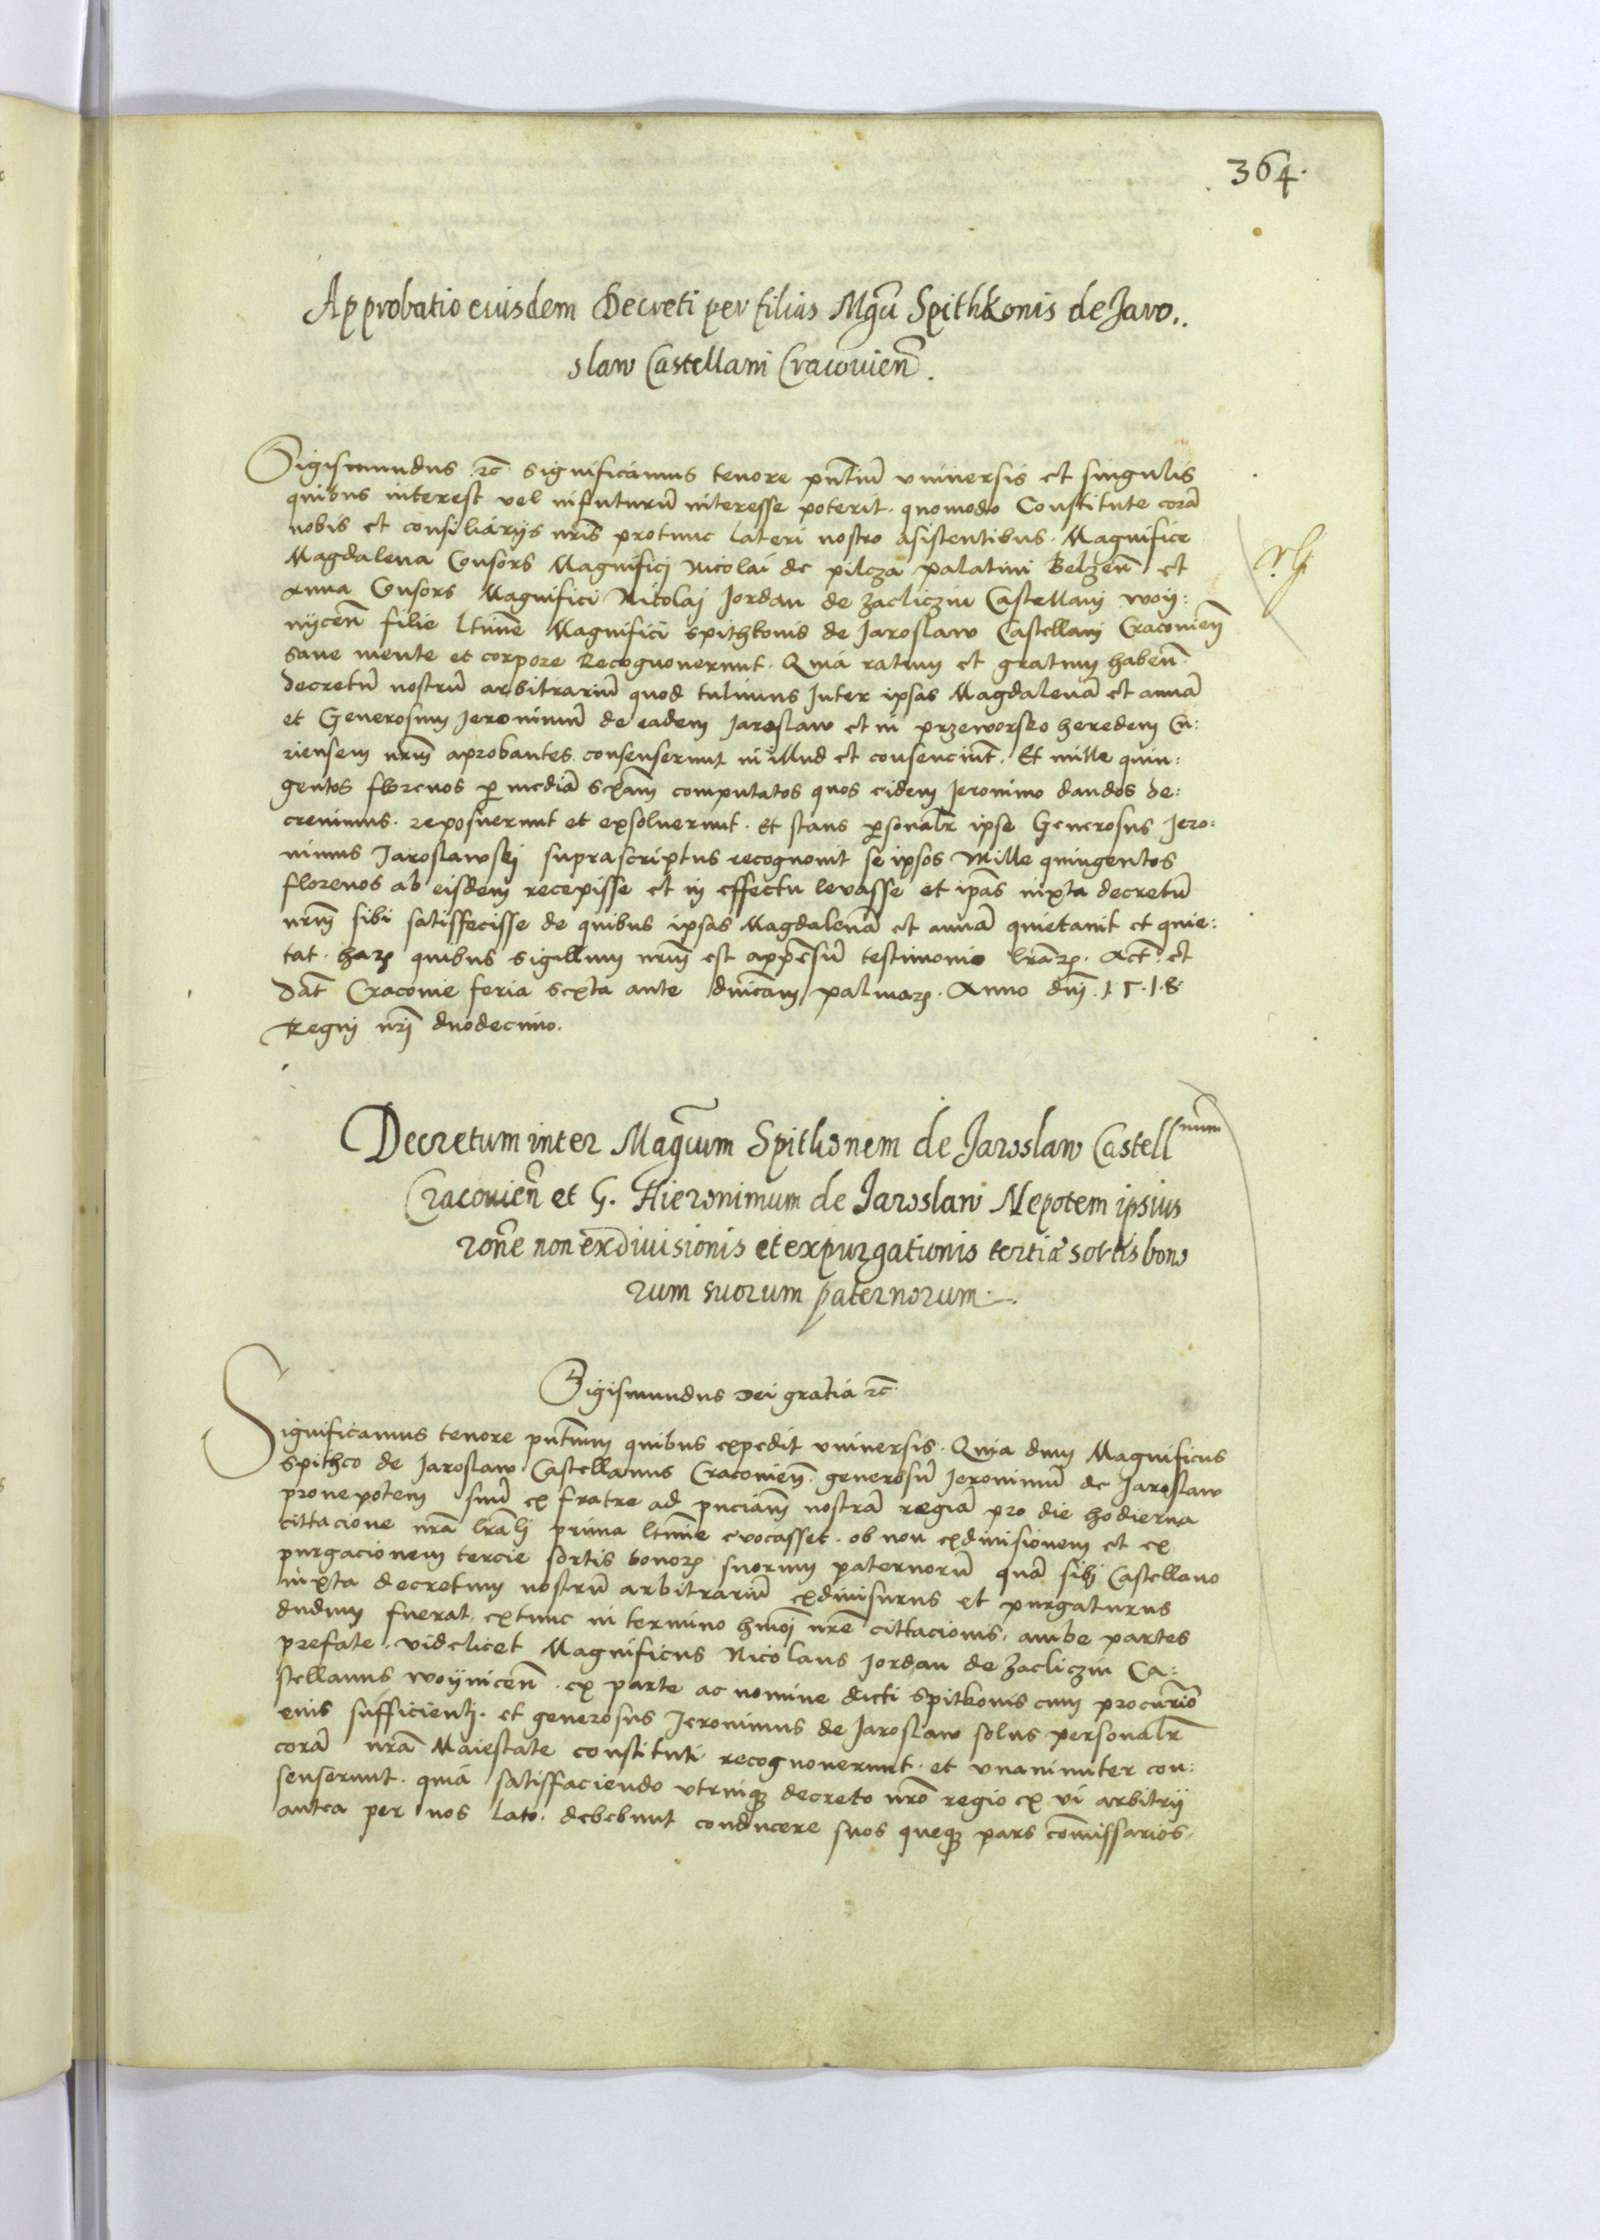 364.
Approbatio eiusdem Decreti per filias Mgci Spithkonis de Jaro..
slaw Castellani Cracouien̄.
Sigismundus ꝛc̄ significamus tenore pn̄tium vniuersis et singulis
quibus interest vel infuturū interesse poterit. quomodo Constitute corā
nobis et consiliarijs nr̄is protunc lateri nostro asistentibus. Magnifice
Magdalena Consors Magnifici Nicolai de pilcza palatini Belzen̄ et
Anna Consors Magnifici Nicolaj Jordan de Zacliczin Castellanj woy:
nÿcen̄ filie ltīme Magnifici spithkonis de Jaroslaw Castellanj Cracouien̄
sane mente et corpore Recognouerunt. Quia ratum et gratum haben̄
decretū nostrū arbitrariū quod tulimus Inter ipsas Magdalenā et annā
et Generosum Jeronimū de eadem Jaroslaw et in przeworsko heredem Cu:
riensem nr̄m aprobantes consenserunt in illud et consenciunt. Et mille quin:
gentos florenos ꝑ mediā sexām computatos quos eidem Jeronimo dandos de:
creuimus. reposuerunt et exsoluerunt. Et stans ꝑsonalr̄ ipse Generosus Jero:
nimus Jaroslawskj suprascriptus recognouit se ipsos Mille quingentos
florenos ab eisdem recepisse et in effectu levasse et ip̄as iuxta decretū
nr̄m sibi satisfecisse de quibus ipsas Magdalenā et annā quietauit et quie:
tat. harꝝ quibus sigillum nr̄m est appensū testimonio lr̄arꝝ. Act̄. et
Dat̄ Cracouie feria sexta ante dn̄icam palmarꝝ. Anno dn̄j. 1518
Regnj nr̄j duodecimo.
Decretum inter Magcum Spitkonem de Jaroslaw Castellnum
Cracouien̄ et G. Hieronimum de Jaroslaw Nepotem ipsius
rōne non exdiuisionis et expurgationis tertiæ sortis bono
rum suorum paternorum.
Sigismundus dei gratia ꝛc̄
Significamus tenore pn̄tium quibus expedit vniuersis. Quia dum Magnificus
spithco de Jaroslaw Castellanus Cracouien̄. generosū Jeronimū de Jaroslaw
pronepotem suū ex fratre ad pn̄ciam nostrā regiā pro die hodierna
cittacione nr̄a lr̄alj prima ltīme euocasset. ob non exdiuisionem et ex
purgacionem tercie sortis bonorꝝ suorum paternorū quā sibj Castellano
iuxta decretum nostrū arbitrariū exdiuisurus et purgaturus
dudum fuerat, extunc in termino hm̄oj nr̄e cittacionis, ambe partes
prefate. videlicet Magnificus Nicolaus Jordan de Zacliczin Ca:
stellanus woÿnicen̄. ex parte ac nomine dicti spitkonis cum procur̄io
eius sufficientj. et generosus Jeronimus de Jaroslaw solus personalr̄
corā nr̄a Maiestate constituti recognouerunt. et vnanimiter con:
senserunt. quia satisfaciendo vtrinqꝫ decreto nr̄o regio ex vi arbitrij
antea per nos lato. debebunt conducere suos queqꝫ pars com̄issarios,